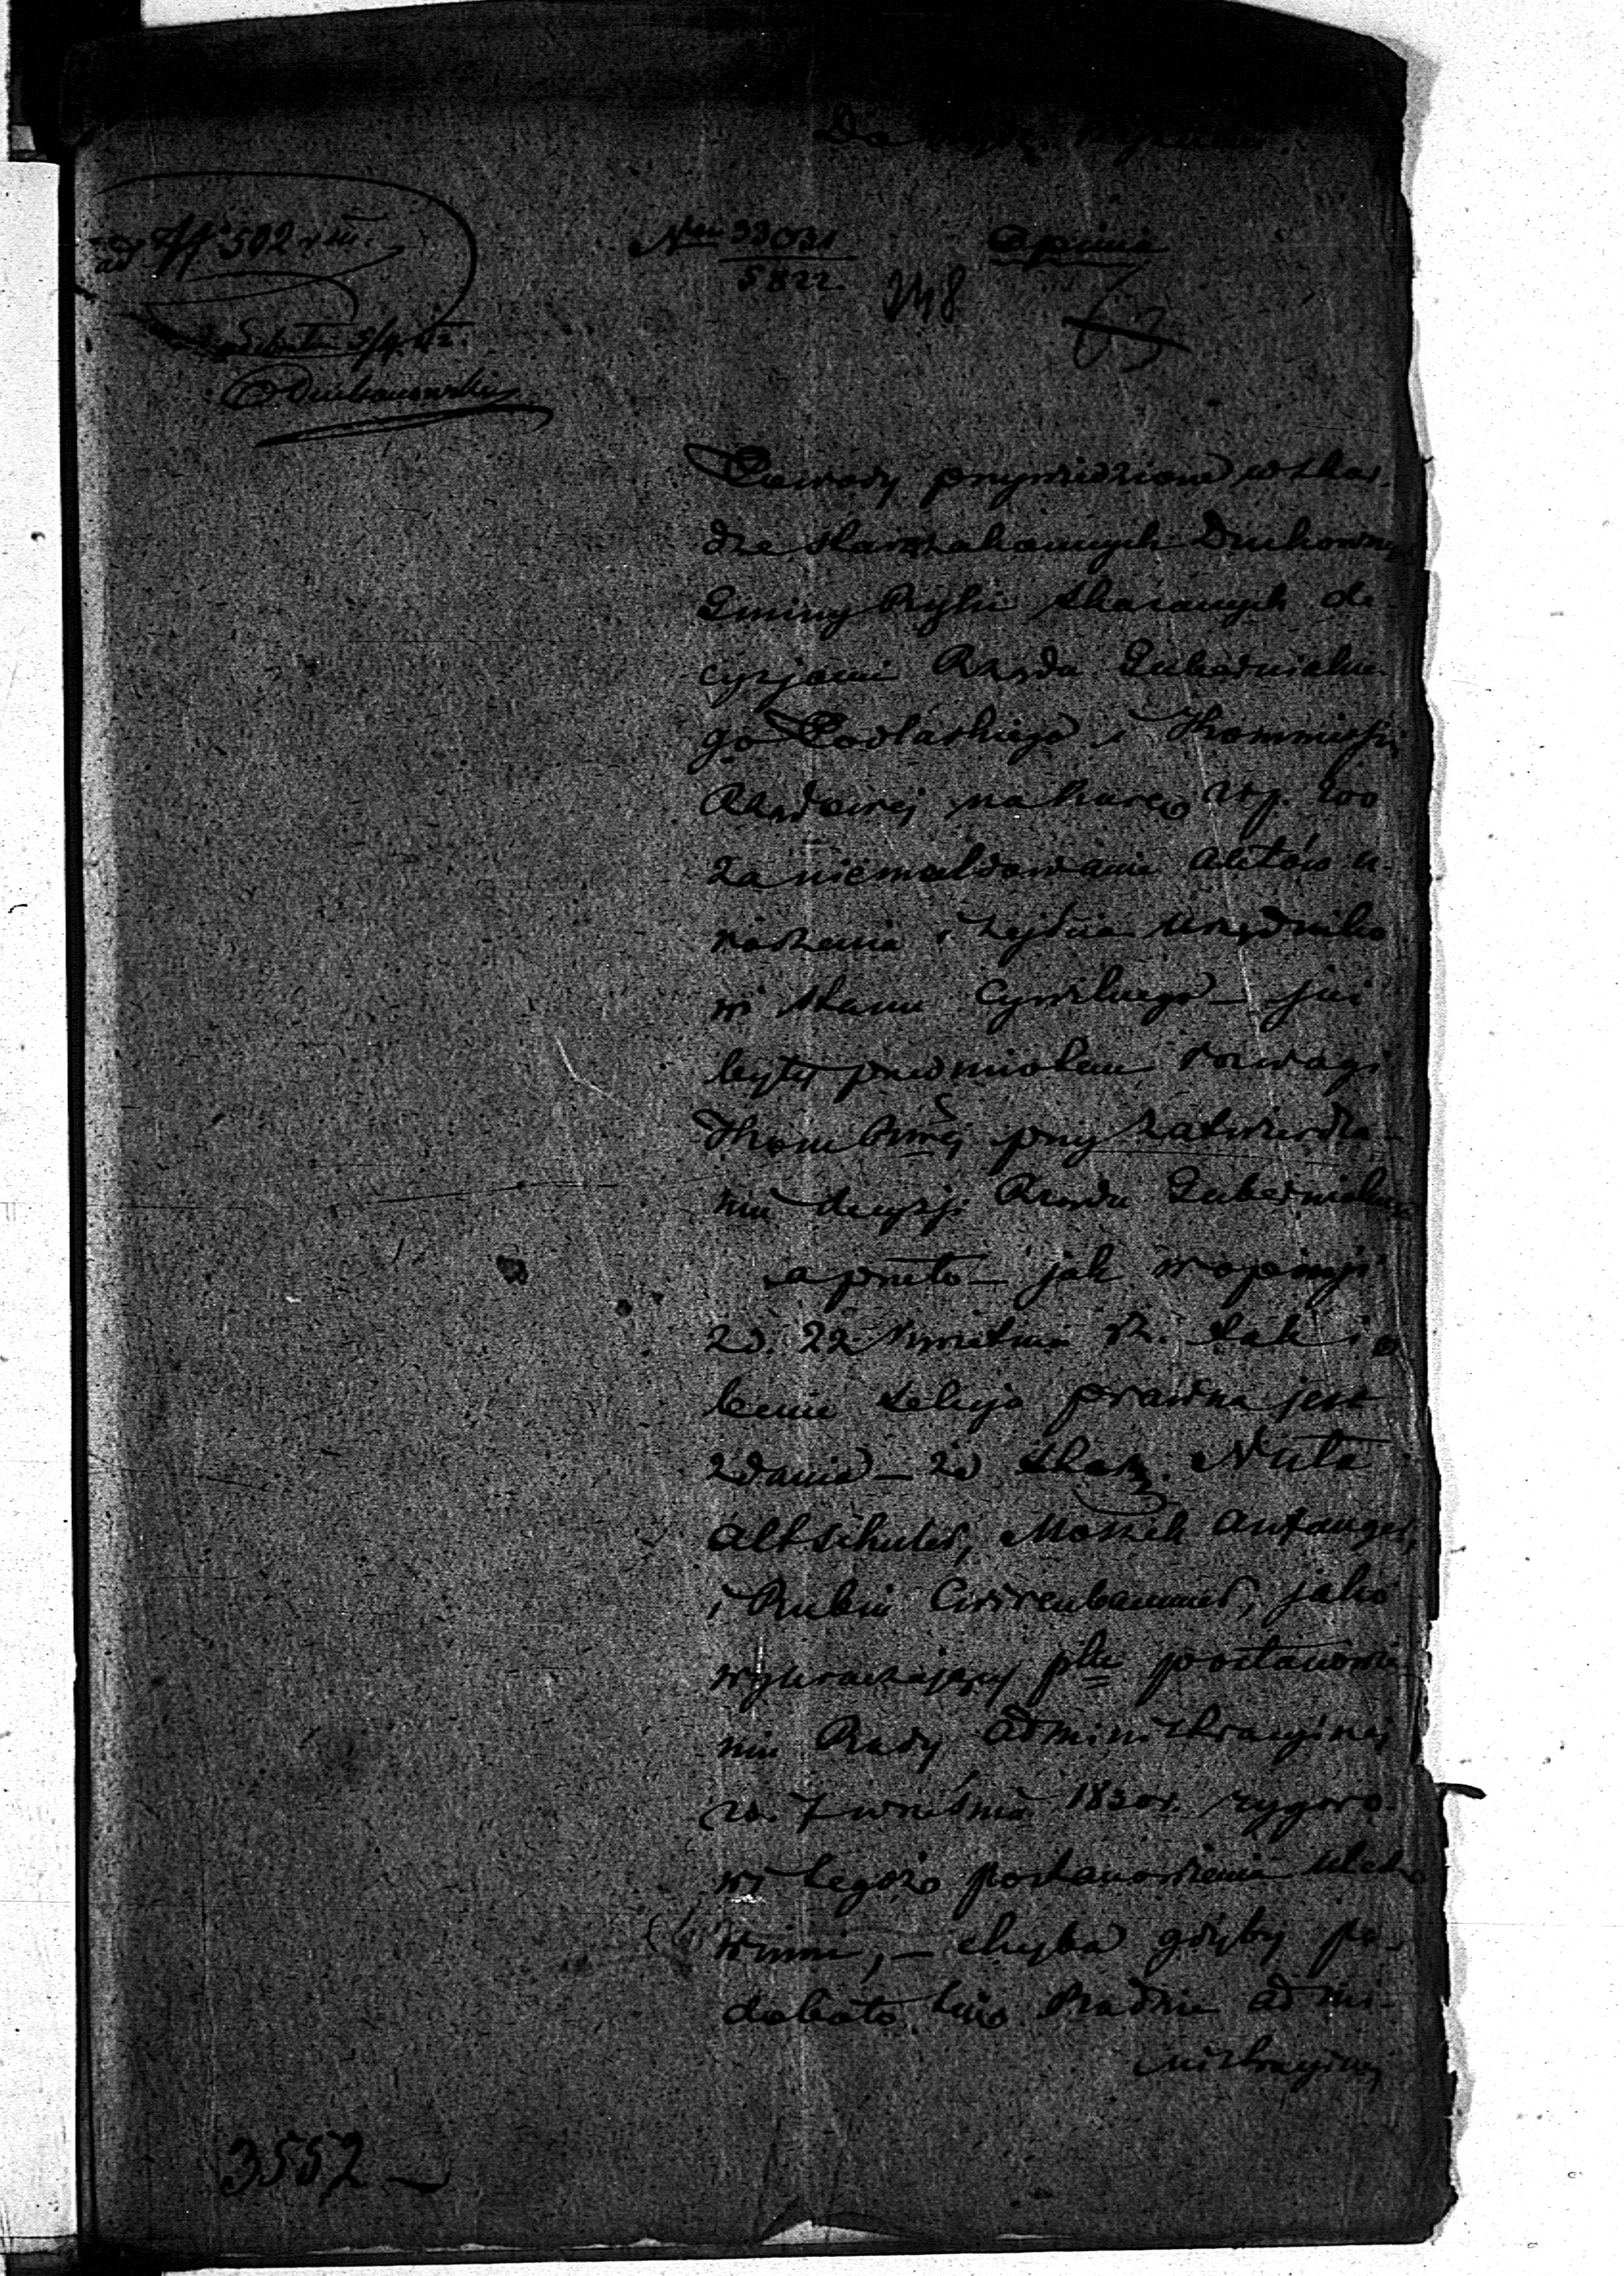 Do Wydz.
ad № 502
Nru 33031
5822
Opinia
248
63
Dziubanowski
Powody przywiedzione w skar-
dze starozakonnych Duchownych
Gminy Ryki skazanych de-
cyzjami Rządu Gubernialne-
go Podlaskiego i Kommissji
Rządowej na karę Złp. 200
za niemeldowanie aktów u-
rodzenia i zejścia Urzędniko-
wi Stanu Cywilnego – już
były przedmiotem rozwagi
Kom Rzwej przy zatwierdze-
niu decyzji Rządu Gubernialnego
a przeto – jak w opinji
z d. 22 Kwietnia rb. tak i o-
becnie Sekcja prawna jest
zdania – że skarż. Nuta
Altschuler, Moszek Anfanger,
i Rubin Cwirenbaumer, jako
wykraczający pko postanowie-
niu Rady Administracyjnej
z d. 7 września 1830 r. rygoro-
wi tegoż postanowienia uledz
winni, – chyba gdyby po-
dobało się Radzie Admi-
nistracyjnej
3552